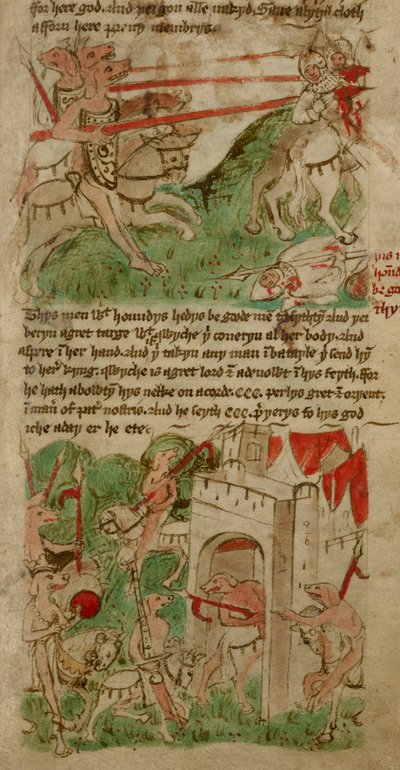 ffor here god. And yei gon alle nakyd. Saue alytyl cloth
afforn here preuy membrys.
Thys men wt houndys hedys be gode me to fyghtyn And yei
beryn agret targe wt wyche yei coueryn al her body. And
aspere in her hand. And yf yei takyn any man in batayle yei send hym
to her kyng. wyche is agret lord & adevowt in hys feyth. ffor
he hath abowtyn hys nekke on acorde. CCC. perlys gret & oryent.
in maner of pater nostris. And he seyth CCC. preyerys to hys god
iche aday er he ete
be go
Thy